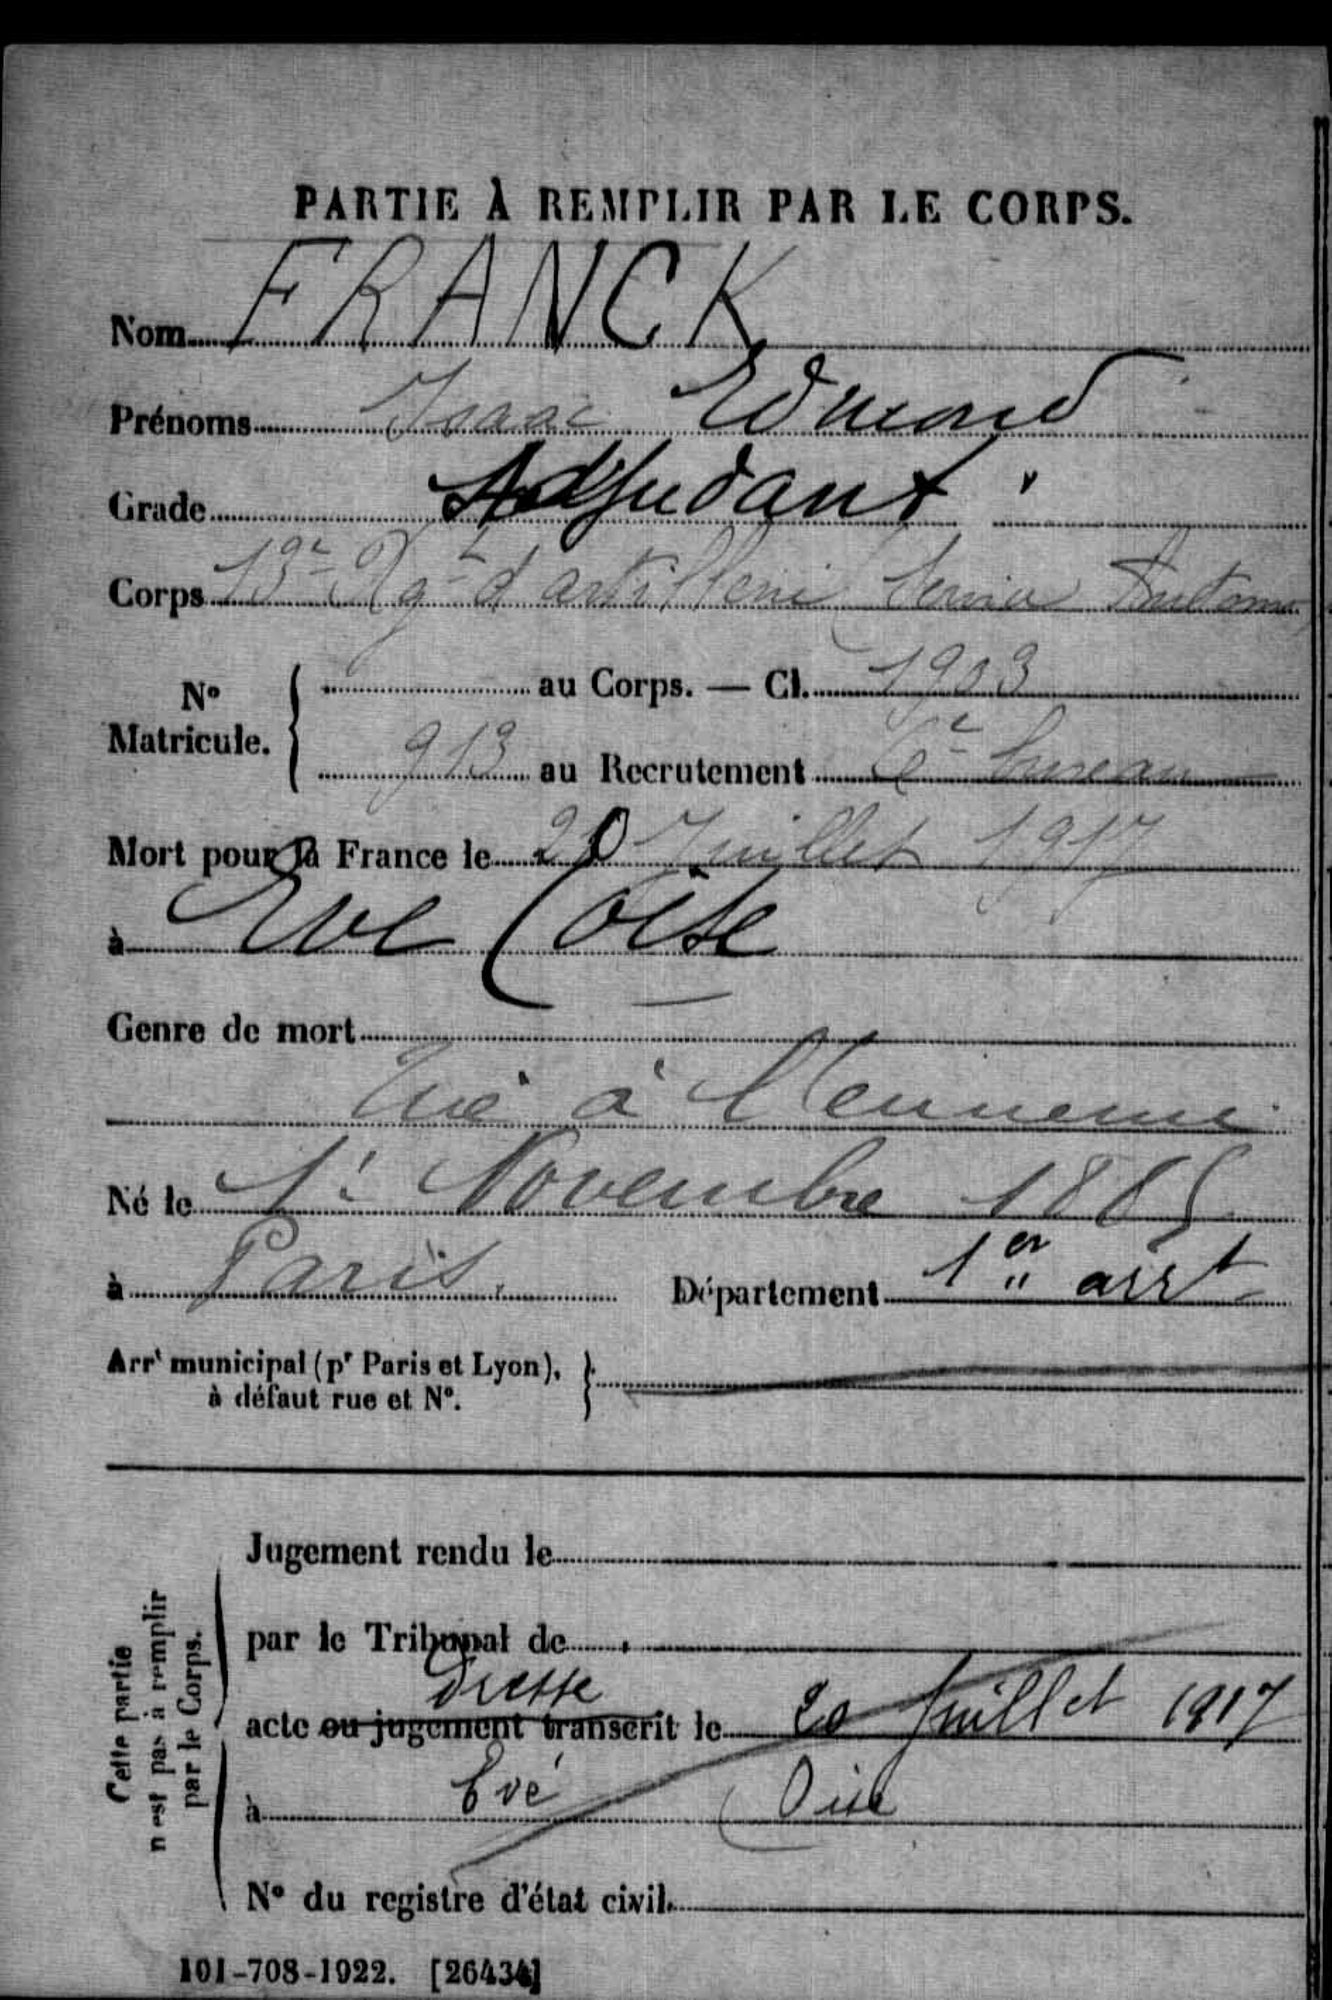 PARTIE À REMPLIR PAR LE CORPS.
Nom FRANCK
Prénoms Isaac Edmond
Grade Adjudant
Corps 13e Rgt d'artillerie (Service Automo.
N° Matricule. { au Corps. — Cl. 1903
913 au Recrutement 6e bureau
Mort pour la France le 20 Juillet 1917
à Eve (Oise
Genre de mort
Tué à l'ennemi
Né le 1er Novembre 1885
à Paris. Département 1er arrt
Arrt municipal (pr Paris et Lyon), }
à défaut rue et N°.
Cette partie
n'est pas à remplir
par le Corps.
Jugement rendu le
par le Tribunal de
dressé
acte ou jugement transcrit le 20 Juillet 1917
à Evé (Oise
N° du registre d'état civil.
101-708-1922. [26434]